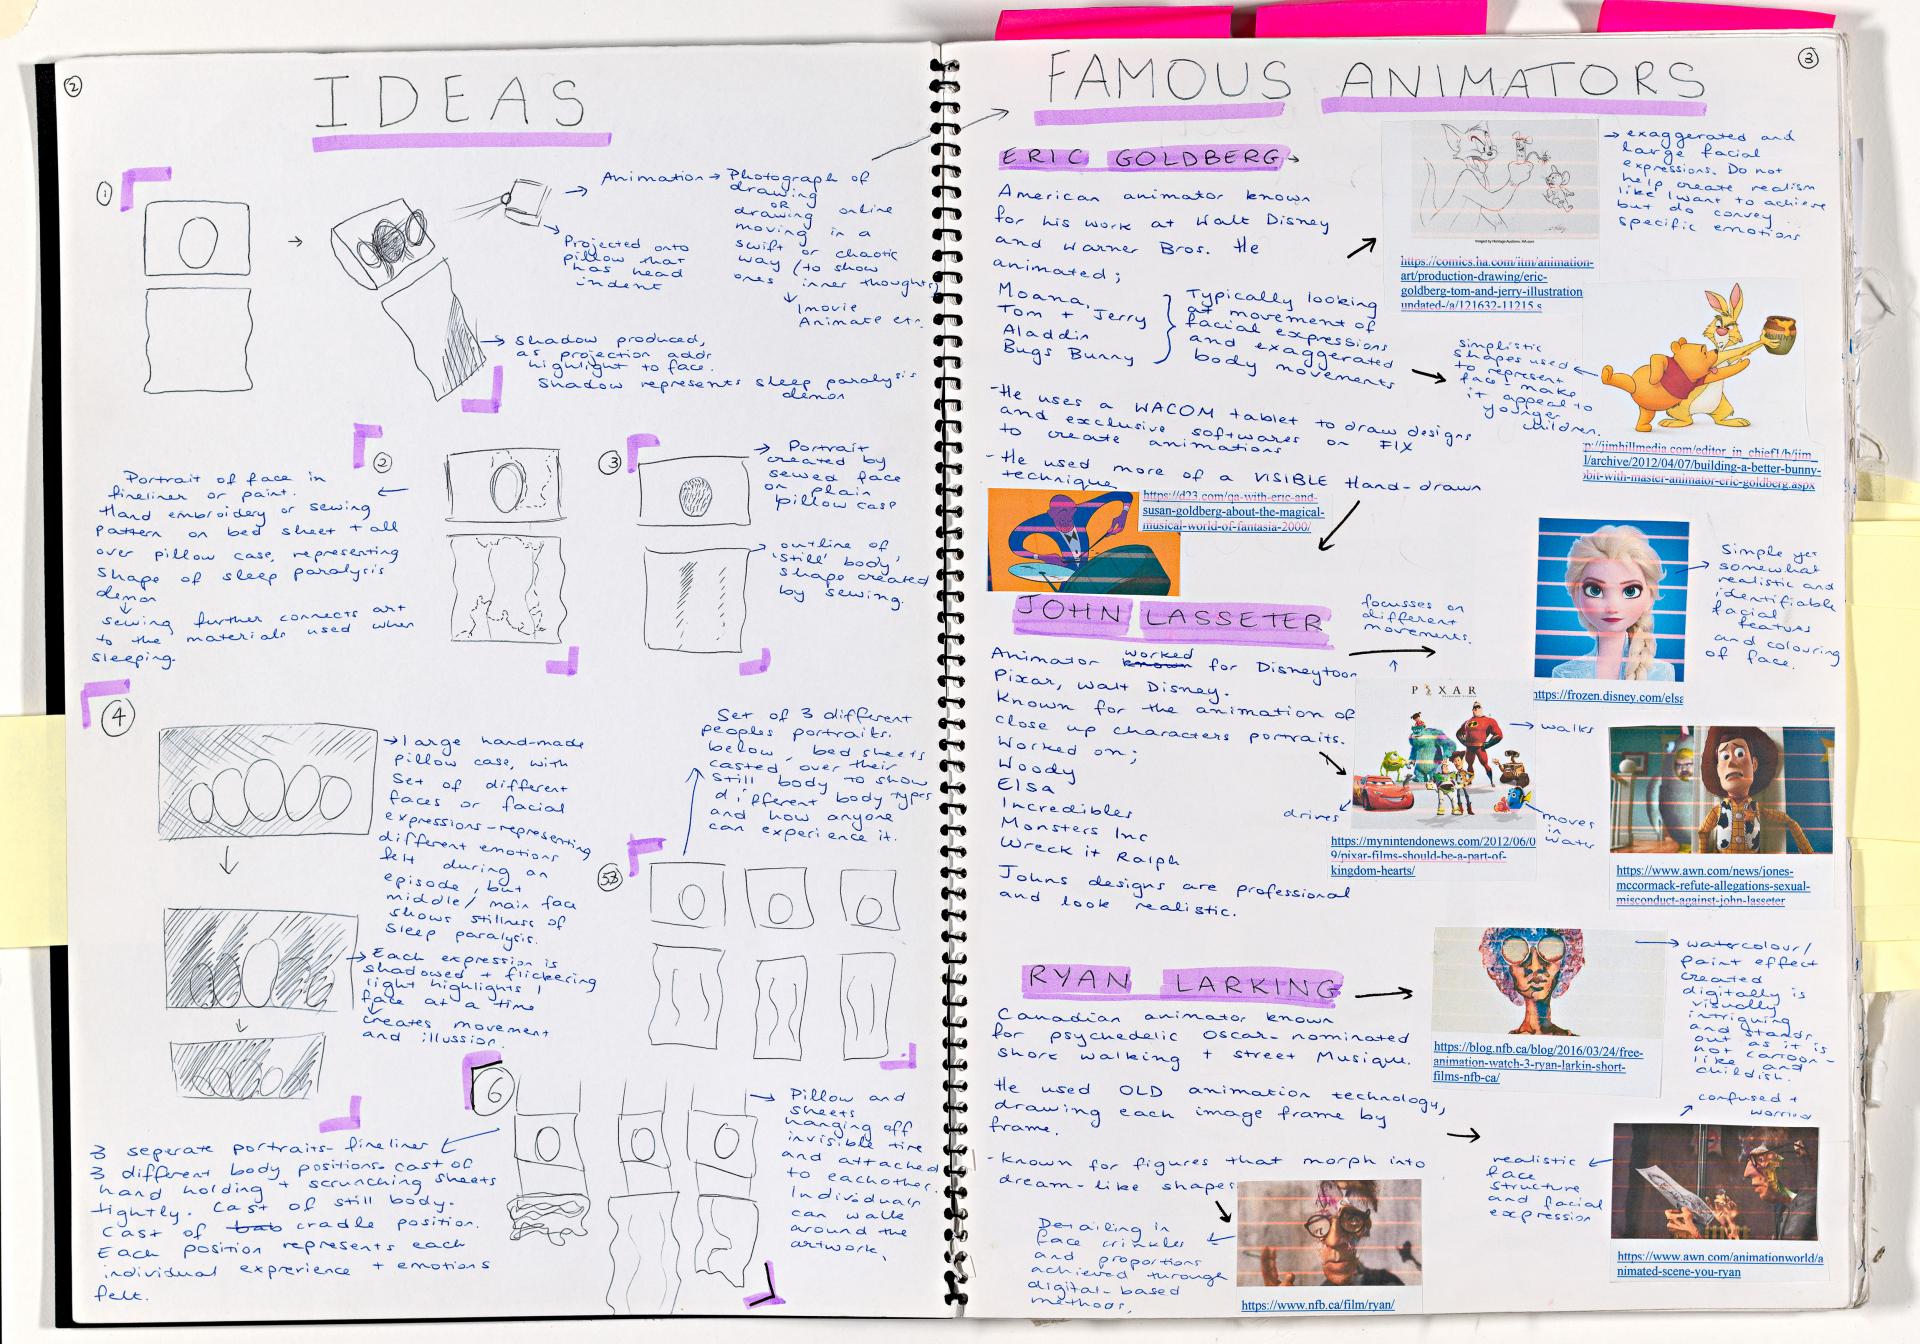 ②
IDEAS
①
Animation → Photograph of
drawing
OR
drawing online
moving in a
swift or chaotic
way (to show
ones inner thoughts)
Imovie
Animate etc.
Projected onto
pillow that
has head
indent
Shadow produced,
as projection adds
highlight to face.
Shadow represents sleep paralysis
demon
②
Portrait of face in
fineliner or paint.
Hand embroidery or sewing
pattern on bed sheet + all
over pillow case, representing
shape of sleep paralysis
demon
sewing further connects art
to the materials used when
sleeping.
③
Portrait
created by
sewed face
on plain
pillow case
outline of
'still' body,
shape created
by sewing.
④
large hand-made
pillow case, with
set of different
faces or facial
expressions-representing
different emotions
felt during an
episode, but
middle/main face
shows stillness of
sleep paralysis.
Each expression is
shadowed + flickering
light highlights 1
face at a time
creates movement
and illusion.
Set of 3 different
peoples portraits.
below, bed sheets
casted over their
still body to show
different body types
and how anyone
can experience it.
5
⑥
Pillow and
sheets
hanging off
invisible wire
and attached
to eachother.
Individuals
can walk
around the
artwork.
3 seperate portraits- fineliner
3 different body positions. cast of
hand holding + scrunching sheets
tightly. Cast of still body.
Cast of bab cradle position.
Each position represents each
individual exprerience + emotions
felt.
③
FAMOUS ANIMATORS
ERIC GOLDBERG →
American animator known
for his work at Walt Disney
and Warner Bros. He
animated;
Moana,
Tom + Jerry
Aladdin
Bugs Bunny
Typically looking
at movement of
facial expressions
and exaggerated
body movements
- He uses a WACOM tablet to draw designs
and exclusive softwares on FIX
to create animations
- He used more of a VISIBLE Hand-drawn
technique
exaggerated and
large facial
expressions. Do not
help create realism
like I want to achieve
but do convey
specific emotions
https://comics.ha.com/itm/animation-
art/production-drawing/eric-
goldberg-tom-and-jerry-illustration
undated-/a/121632-11215.s
simplistic
shapes used
to represent
face, make
it appeal to
younger
children.
p://jimhillmedia.com/editor_in_chief1/b/jim_
l/archive/2012/04/07/building-a-better-bunny-
bit-with-master-animator-eric-goldberg.aspx
https://d23.com/qa-with-eric-and-
susan-goldberg-about-the-magical-
musical-world-of-fantasia-2000/
JOHN LASSETER
Animator known worked for Disneytoon
Pixar, Walt Disney.
Known for the animation of
close up characters portraits.
Worked on;
Woody
Elsa
Incredibles
Monsters Inc
Wreck it Ralph
Johns designs are professional
and look realistic.
focusses on
different
movements.
Simple yet
somewhat
realistic and
identifiable
facial
features
and colouring
of face.
https://frozen.disney.com/elsa
PIXAR
walks
drives
moves
in
water
https://mynintendonews.com/2012/06/0
9/pixar-films-should-be-a-part-of-
kingdom-hearts/
https://www.awn.com/news/jones-
mccormack-refute-allegations-sexual-
misconduct-against-john-lasseter
RYAN LARKING
Canadian animator known
for psychedelic Oscar-nominated
short walking + street Musique.
He used OLD animation technology,
drawing each image frame by
frame.
- known for figures that morph into
dream-like shapes
watercolour/
paint effect
created
digitally is
visually
intriguing
and stands
out as it is
not cartoon-
like and
childish.
https://blog.nfb.ca/blog/2016/03/24/free-
animation-watch-3-ryan-larkin-short-
films-nfb-ca/
confused +
worried
realistic
face
structure
and facial
expression
https://www.awn.com/animationworld/a
nimated-scene-you-ryan
Detailing in
face crinkles
and proportions
achieved through
digital-based
methods.
https://www.nfb.ca/film/ryan/